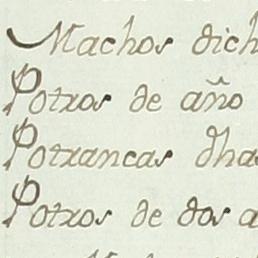 Machos dich
Potros de año
Potrancas dha
Potros de dos a